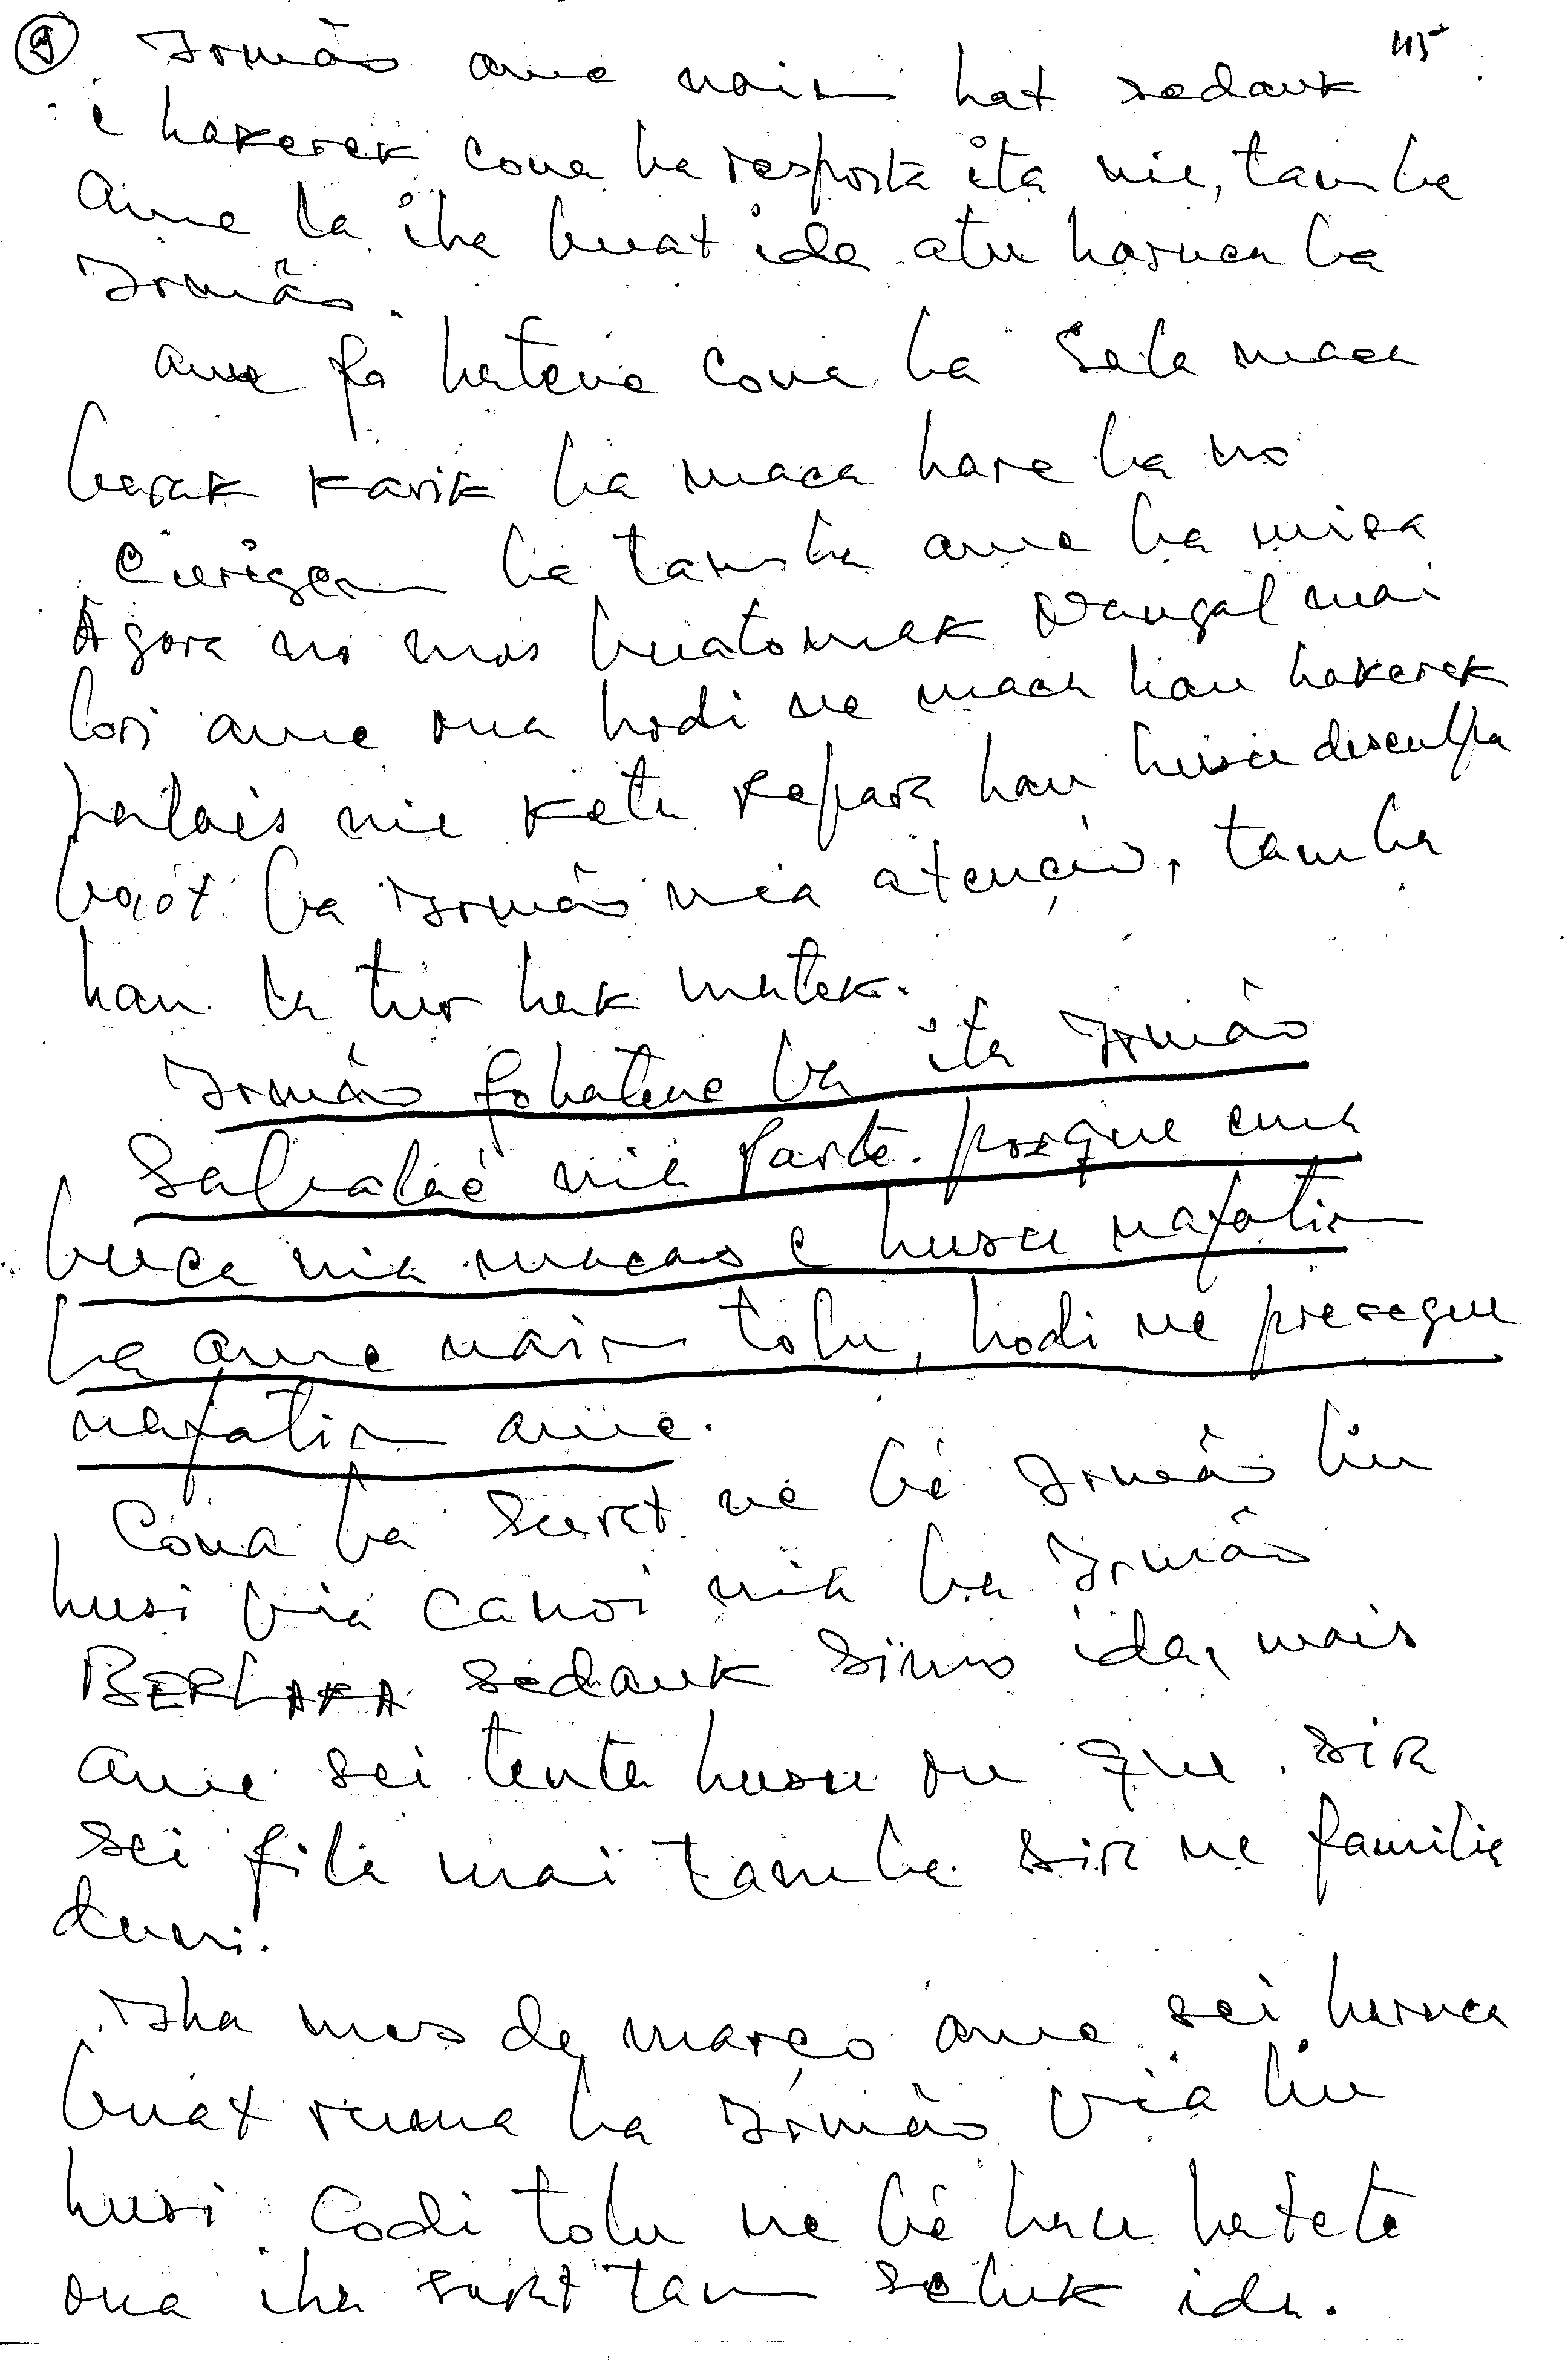 9 Irmão ame nain hat sedauk 115
e hakerek cona ba resposta ita nia, tamba
ame la iha buat ida atu haruca ba
Irmão.
ame fo hatene cona ba Sala maca
barak karik ba maca hare ba no
corigen ba tamba ame ba misa
Agora no mos buatomak nangal mai
lori ame rua hodi ne maca hau hakerek
palais nie keta repara hau husu desculpa
boót ba Irmão nia atenção, tamba
hau la tur hak matek.
Irmão fohatene ba ita Irmão
Sabalaé nia parte. porque ema
buca nia macas e husu nafatin
ba ame nain tolu, hodi ne presegue
nafatin ame.
Cona ba surat ne bé Irmão liu
husi via canoi nia ba Irmão
BERLAKA sedauk simo ida, mais
ame sei tenta husu ou que sira
sei fila mai tamba sira ne familia
duni.
Iha mes de março ame sei haruca
buat ruma ba Irmão via liu
husi Codi tolu ne bé hau hateta
ona iha surat tan seluk ida.